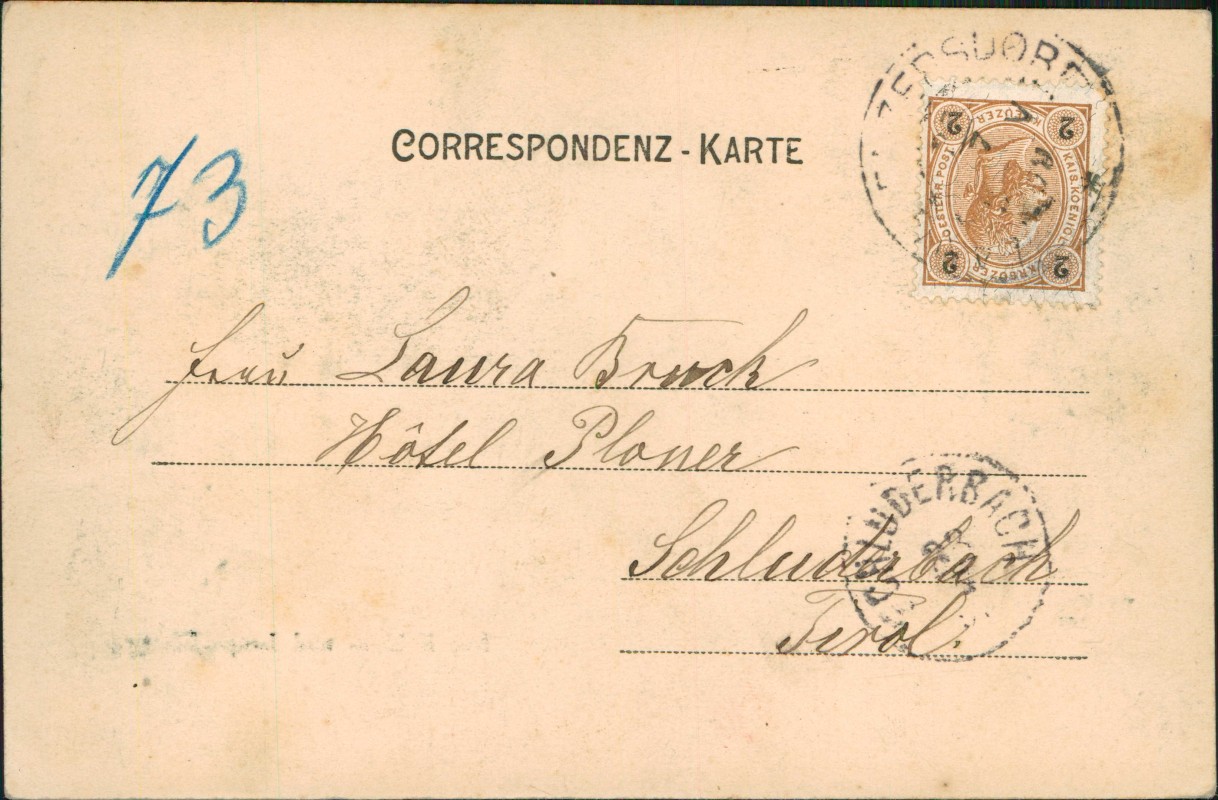 CORRESPONDENZ-KARTE
73
2 KREUZER 2
KAIS. KOENIGL.
OESTERR. POST
2 KREUZER 2
Frau Laura Bruck
Hôtel Ploner
Schluderbach
Tirol.
SCHLUDERBACH